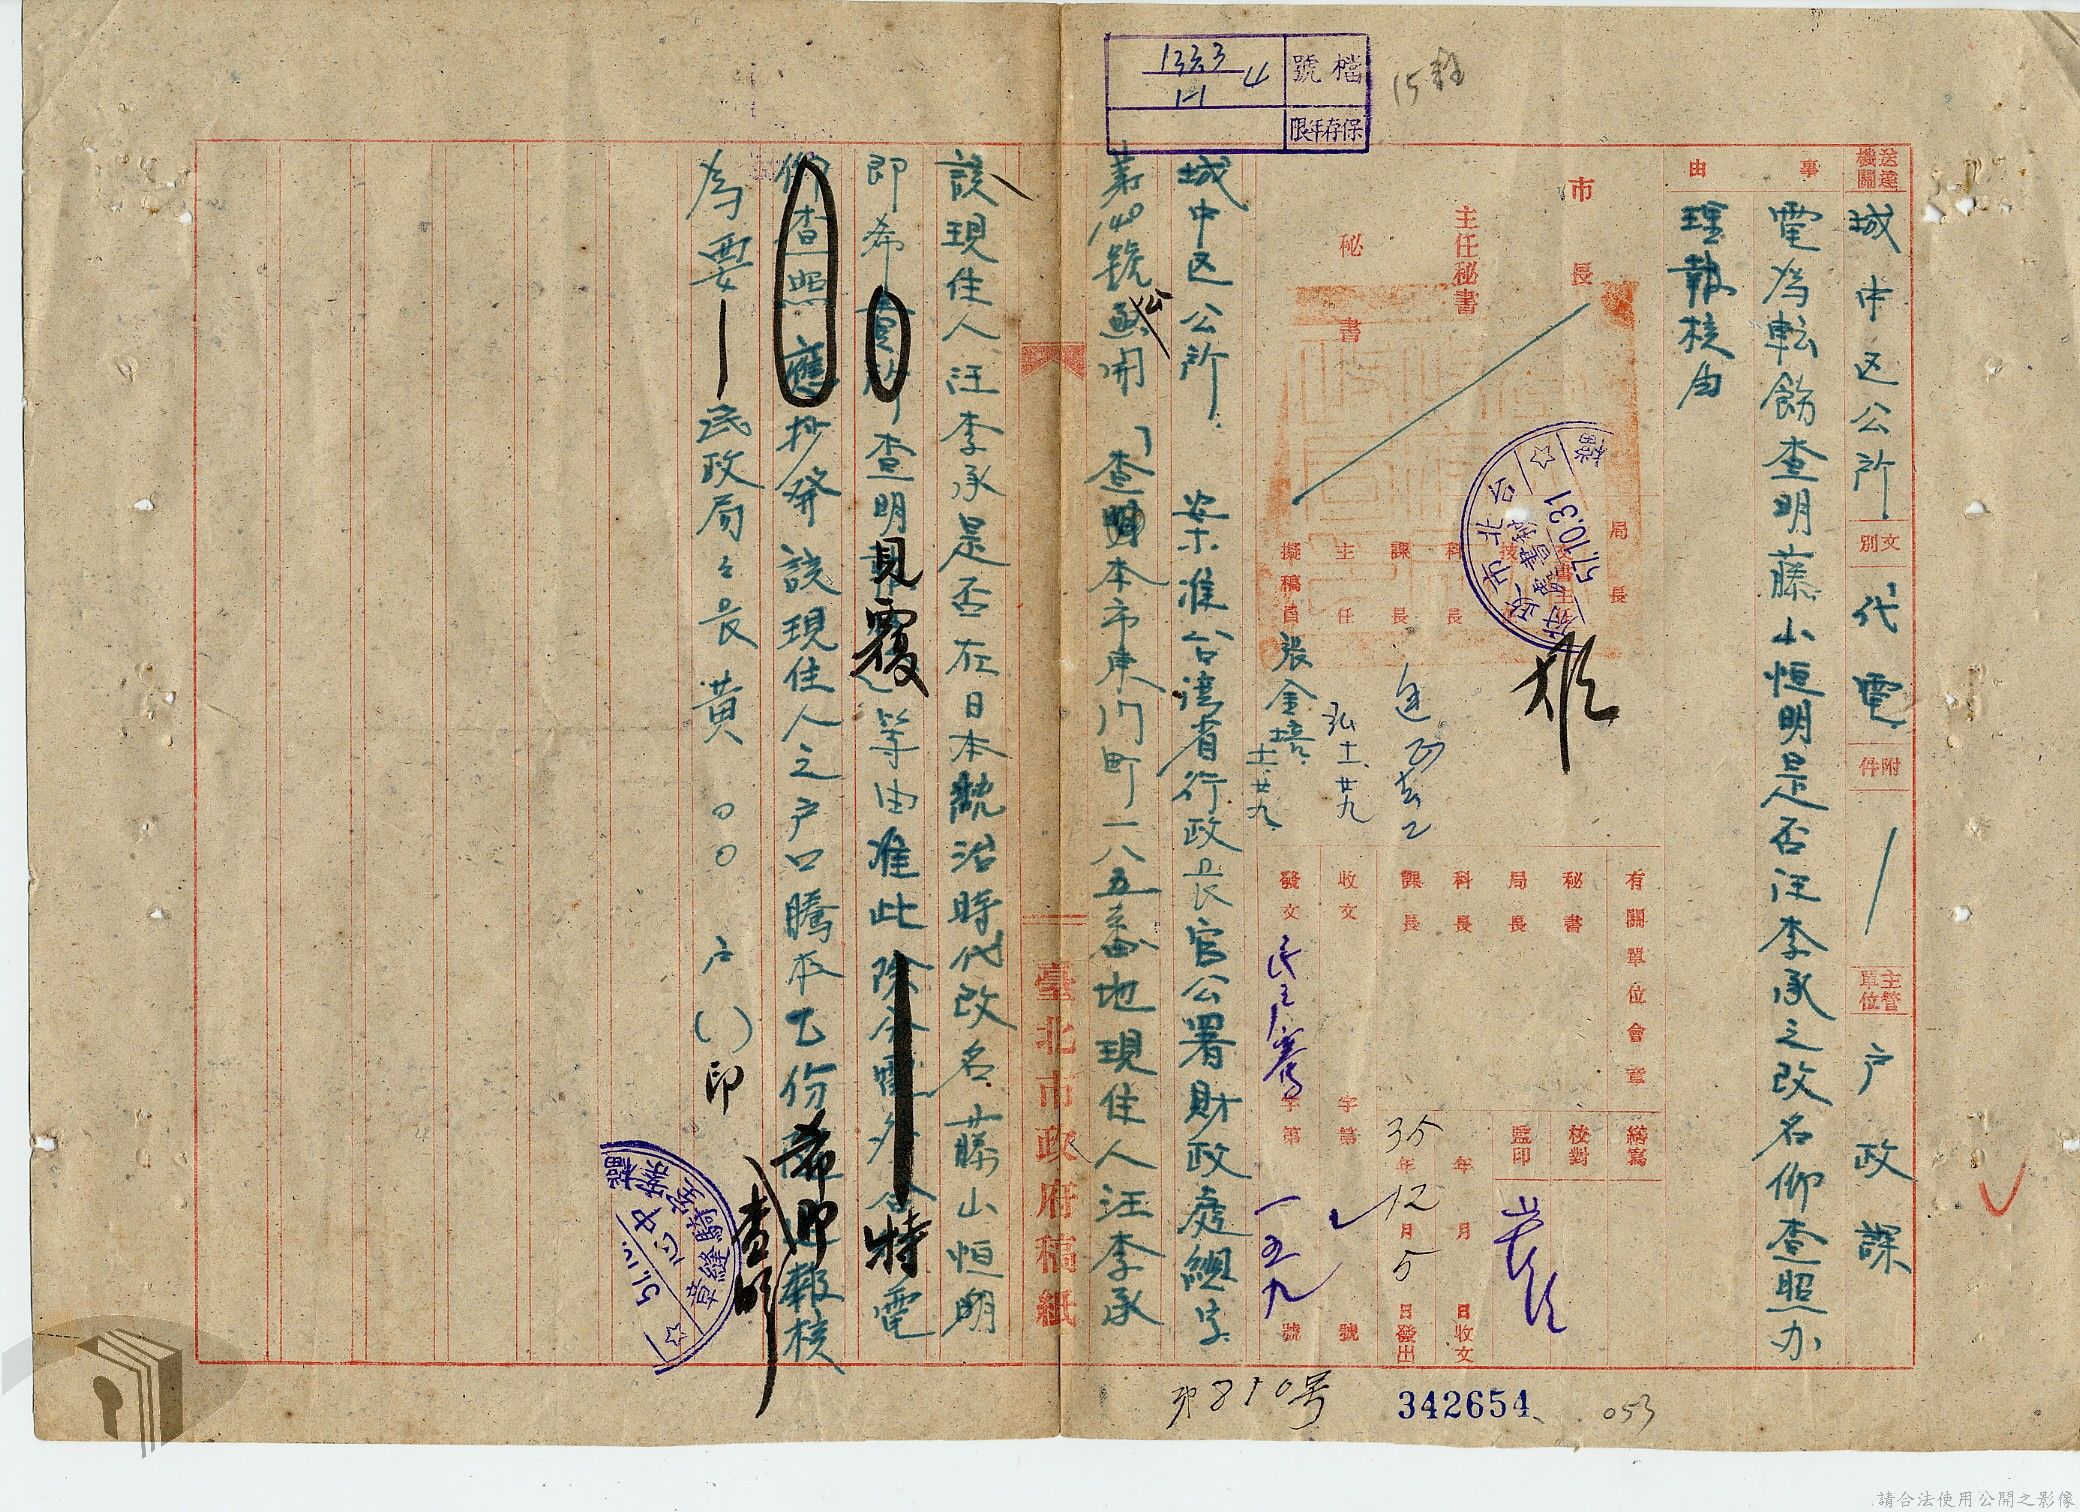 檔號
1333/1-1 4
保存年限
送達機關
城中区公所
文別
代電
附件
主管單位
户政課
事由
電為転飭查明藤山恒明是否汪李承之改名仰查照办
理報核由
市長
主任秘書
秘書
局長
科長
課長
主任
擬稿員
張金培
十二.廿九
十二.廿九
有關單位會章
秘書
局長
科長
課長
收文
發文
繕寫
校對
監印
年月日收文
35年12月5日發出
收文 字第 號
字第一五九號
57.10.31
城中区公所 案准台湾省行政長官公署財政處總字
第140號公函開「查明本市東門町一八五番地現住人汪李承
臺北市政府稿紙
該現住人汪李承是否在日本統治時代改名藤山恒明
即希查明見覆」等由准此除分電外合特電
仰查照應抄發該現住人之户口謄本乙份希即查明報核
為要
民政局局長黃〇〇 户()印
第810号
342654
053
請合法使用公開之影像